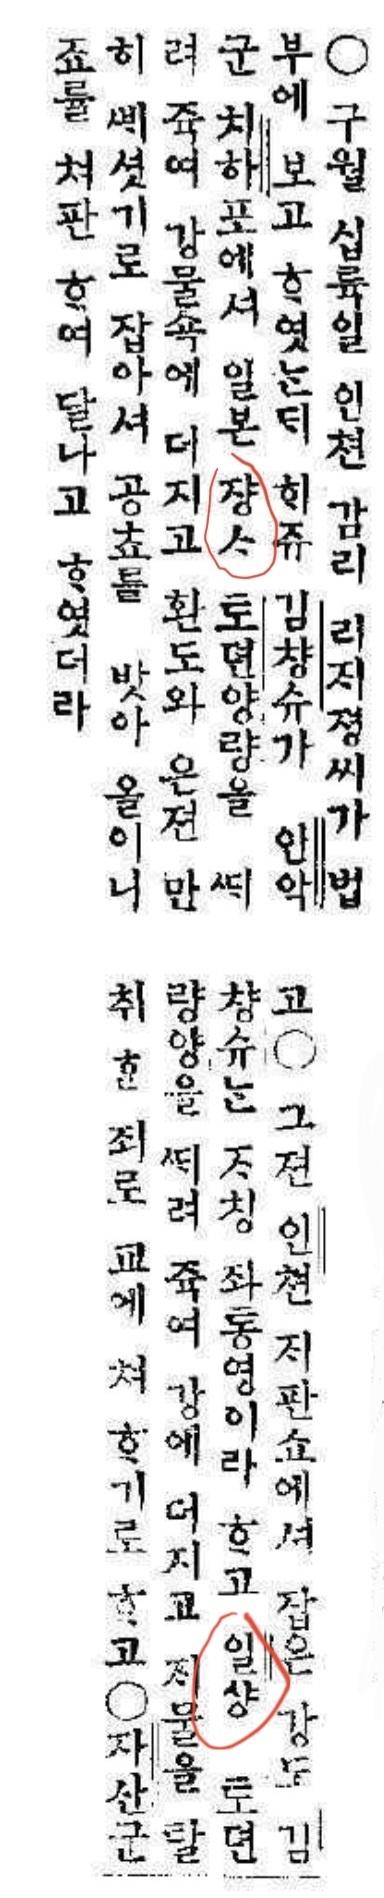 ○ 구월 십륙일 인쳔 감리 리지졍씨가 법
부에 보고 ᄒᆞ엿ᄂᆞᆫᄃᆡ ᄒᆡ쥬 김챵슈가 안악
군 치하포에셔 일본 쟝ᄉᆞ 토뎐양량을 ᄯᆡ
려 쥭여 강물속에 더지고 환도와 은젼 만
히 ᄲᆡ셧기로 잡아셔 공쵸를 밧아 올이니
죠률 쳐판 ᄒᆞ여 달나고 ᄒᆞ엿더라
고 ○ 그젼 인쳔 ᄌᆡ판쇼에셔 잡은 강도 김
챵슈ᄂᆞᆫ ᄌᆞ칭 좌통영이라 ᄒᆞ고 일샹 토뎐
량양을 ᄯᆡ려 쥭여 강에 더지고 ᄌᆡ물을 탈
취 ᄒᆞᆫ 죄로 교에 쳐 ᄒᆞ기로 ᄒᆞ고 ○ 자산군